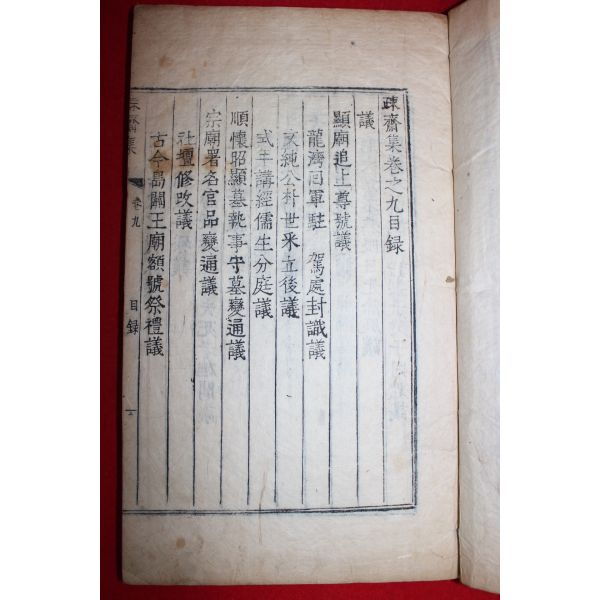 疎齋集卷之九目録
議
顯廟追上尊號議
龍濟回軍駐 駕處封識議
文純公朴世采立後議
式年講經儒生分庭議
順懷昭顯墓執事守墓變通議
宗廟署名官品變通議
社壇修改議
古今島關王廟額號祭禮議
齋集 卷九 目録 一